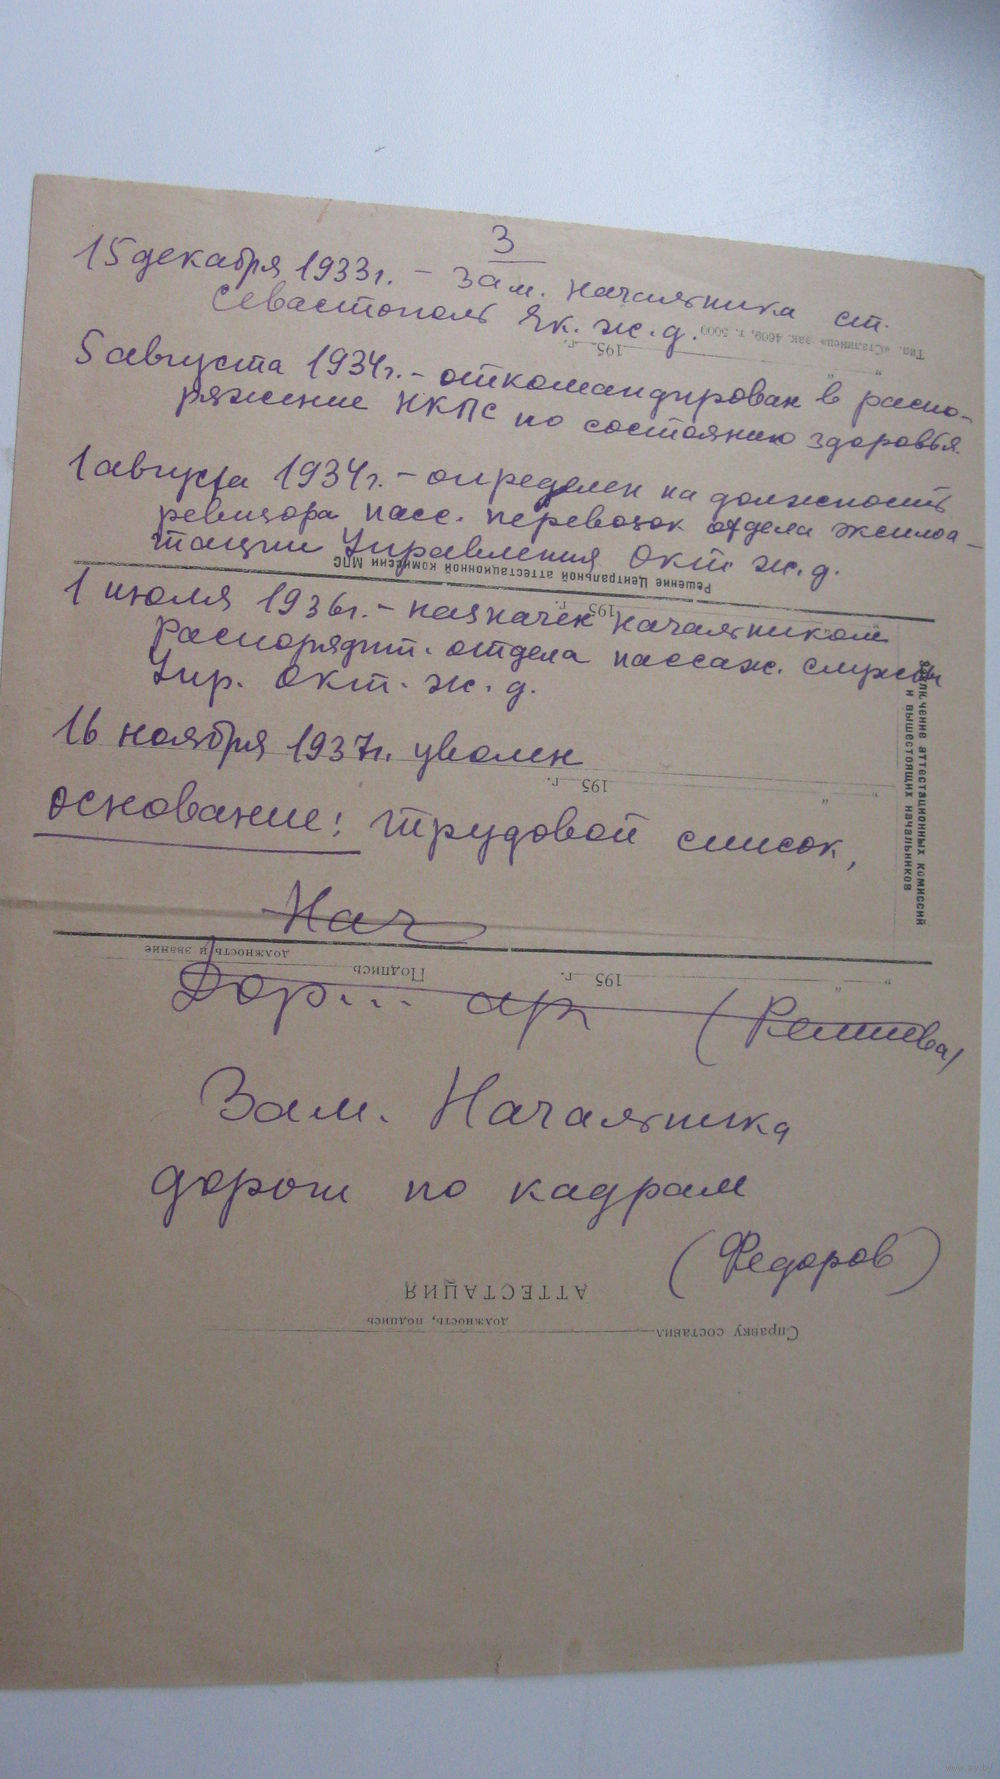 3
15 декабря 1933г. – Зам. Начальника ст.
Севастополь Як. ж. д.
Тип. «Сталинец» зак. 4609, т. 5000
" " 195 г.
5 августа 1934г. – откомандирован в распо-
ряжение НКПС по состоянию здоровья.
1 августа 1934г. – определен на должность
ревизора пасс. перевозок отдела эксплоа-
тации Управления Окт. ж. д.
Решение Центральной аттестационной комиссии МПС
195 г.
1 июля 1936г. – назначен начальником
Распорядит. отдела пассаж. службы
Упр. Окт. ж. д.
Заключение аттестационных комиссий
и вышестоящих начальников
16 ноября 1937г. уволен
" " 195 г.
основание: трудовой список,
Нач
должность и звание
" " 195 г. Подпись
Дор...
Зам. Начальника
дороги по кадрам
(Федоров)
АТТЕСТАЦИЯ
должность, подпись
Справку составил
www.ay.by